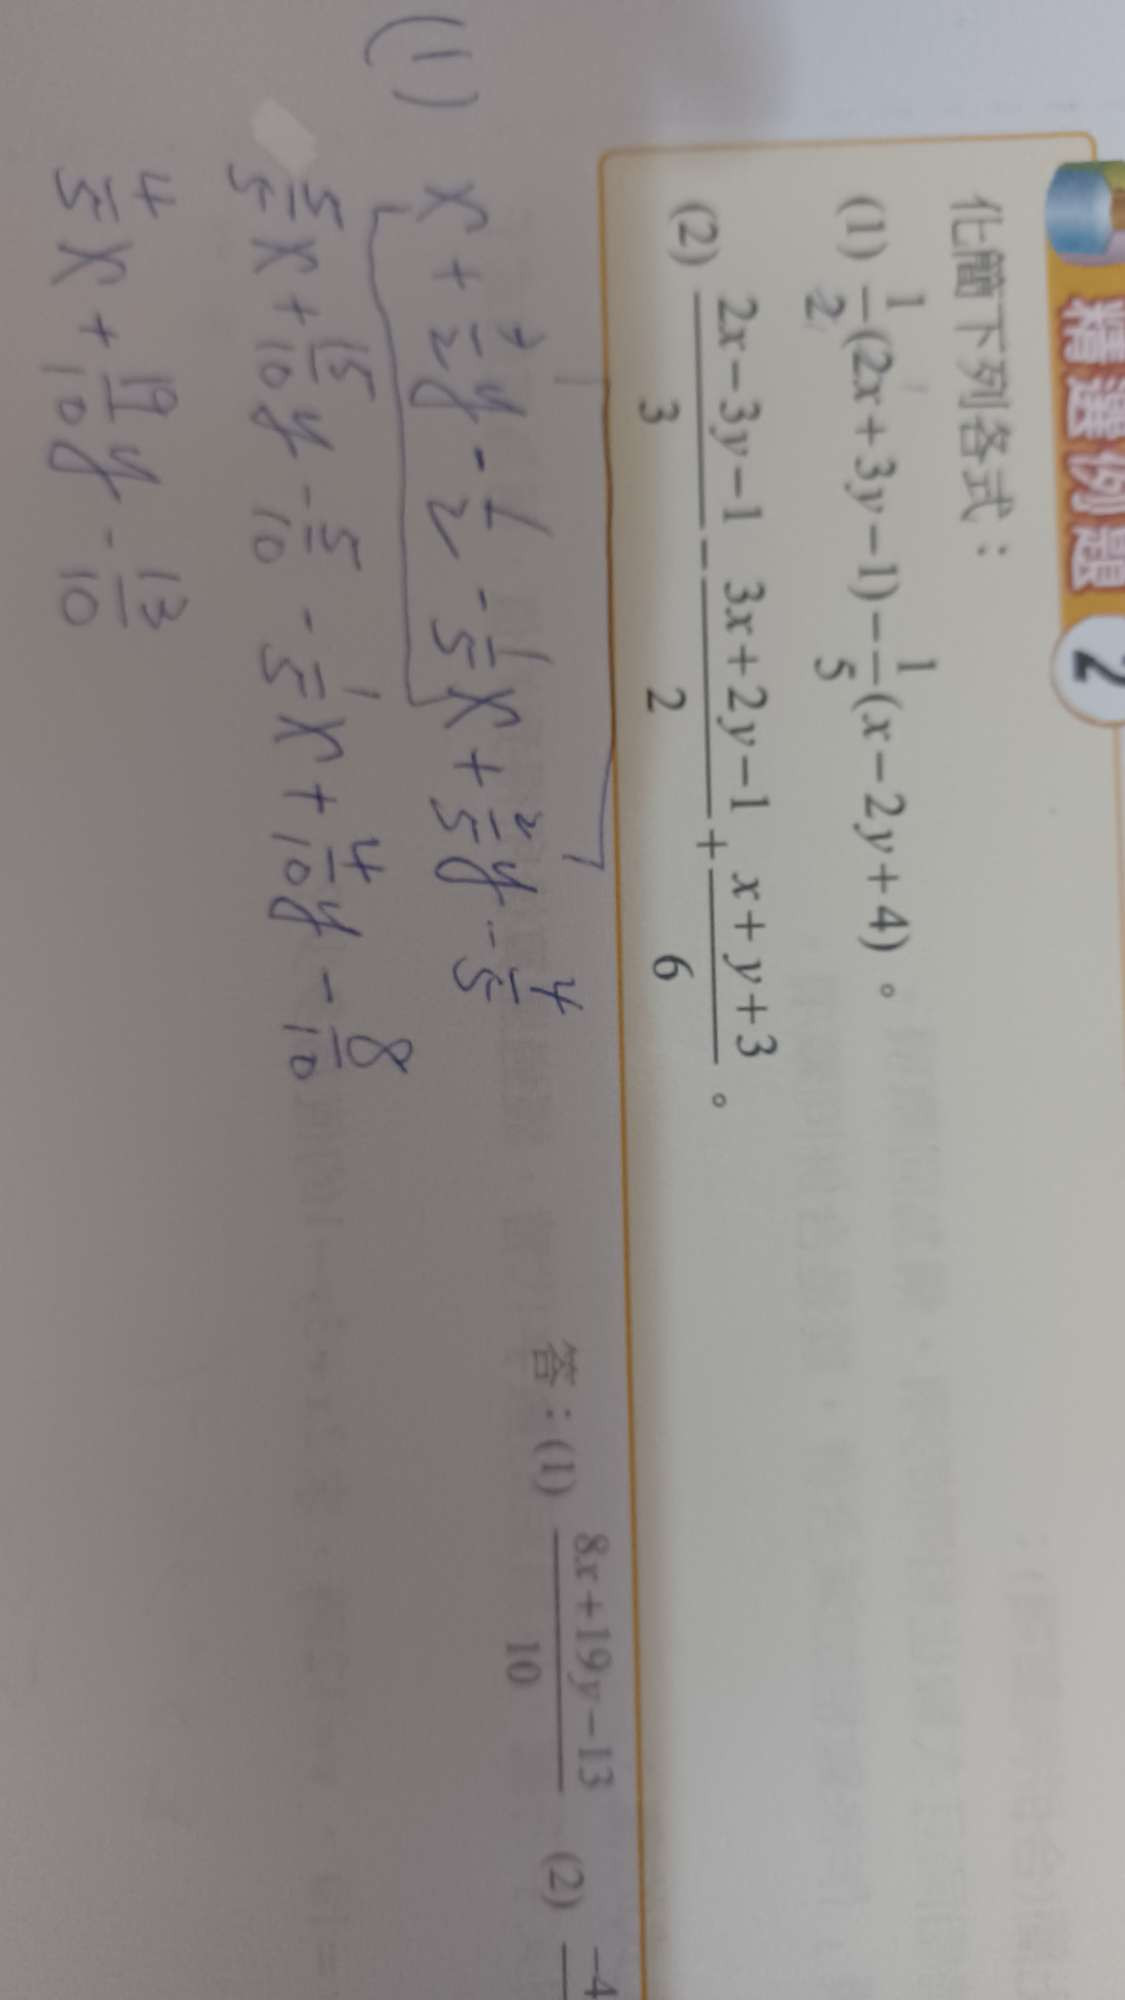 精選例題 2
化簡下列各式：
(1) \frac{1}{2}(2x+3y-1)-\frac{1}{5}(x-2y+4)。
(2) \frac{2x-3y-1}{3}-\frac{3x+2y-1}{2}+\frac{x+y+3}{6}。
答：(1) \frac{8x+19y-13}{10} (2) -4
(1) x+\frac{3}{2}y-\frac{1}{2}-\frac{1}{5}x+\frac{2}{5}y-\frac{4}{5}
\frac{5}{5}x+\frac{15}{10}y-\frac{5}{10}-\frac{1}{5}x+\frac{4}{10}y-\frac{8}{10}
\frac{4}{5}x+\frac{19}{10}y-\frac{13}{10}